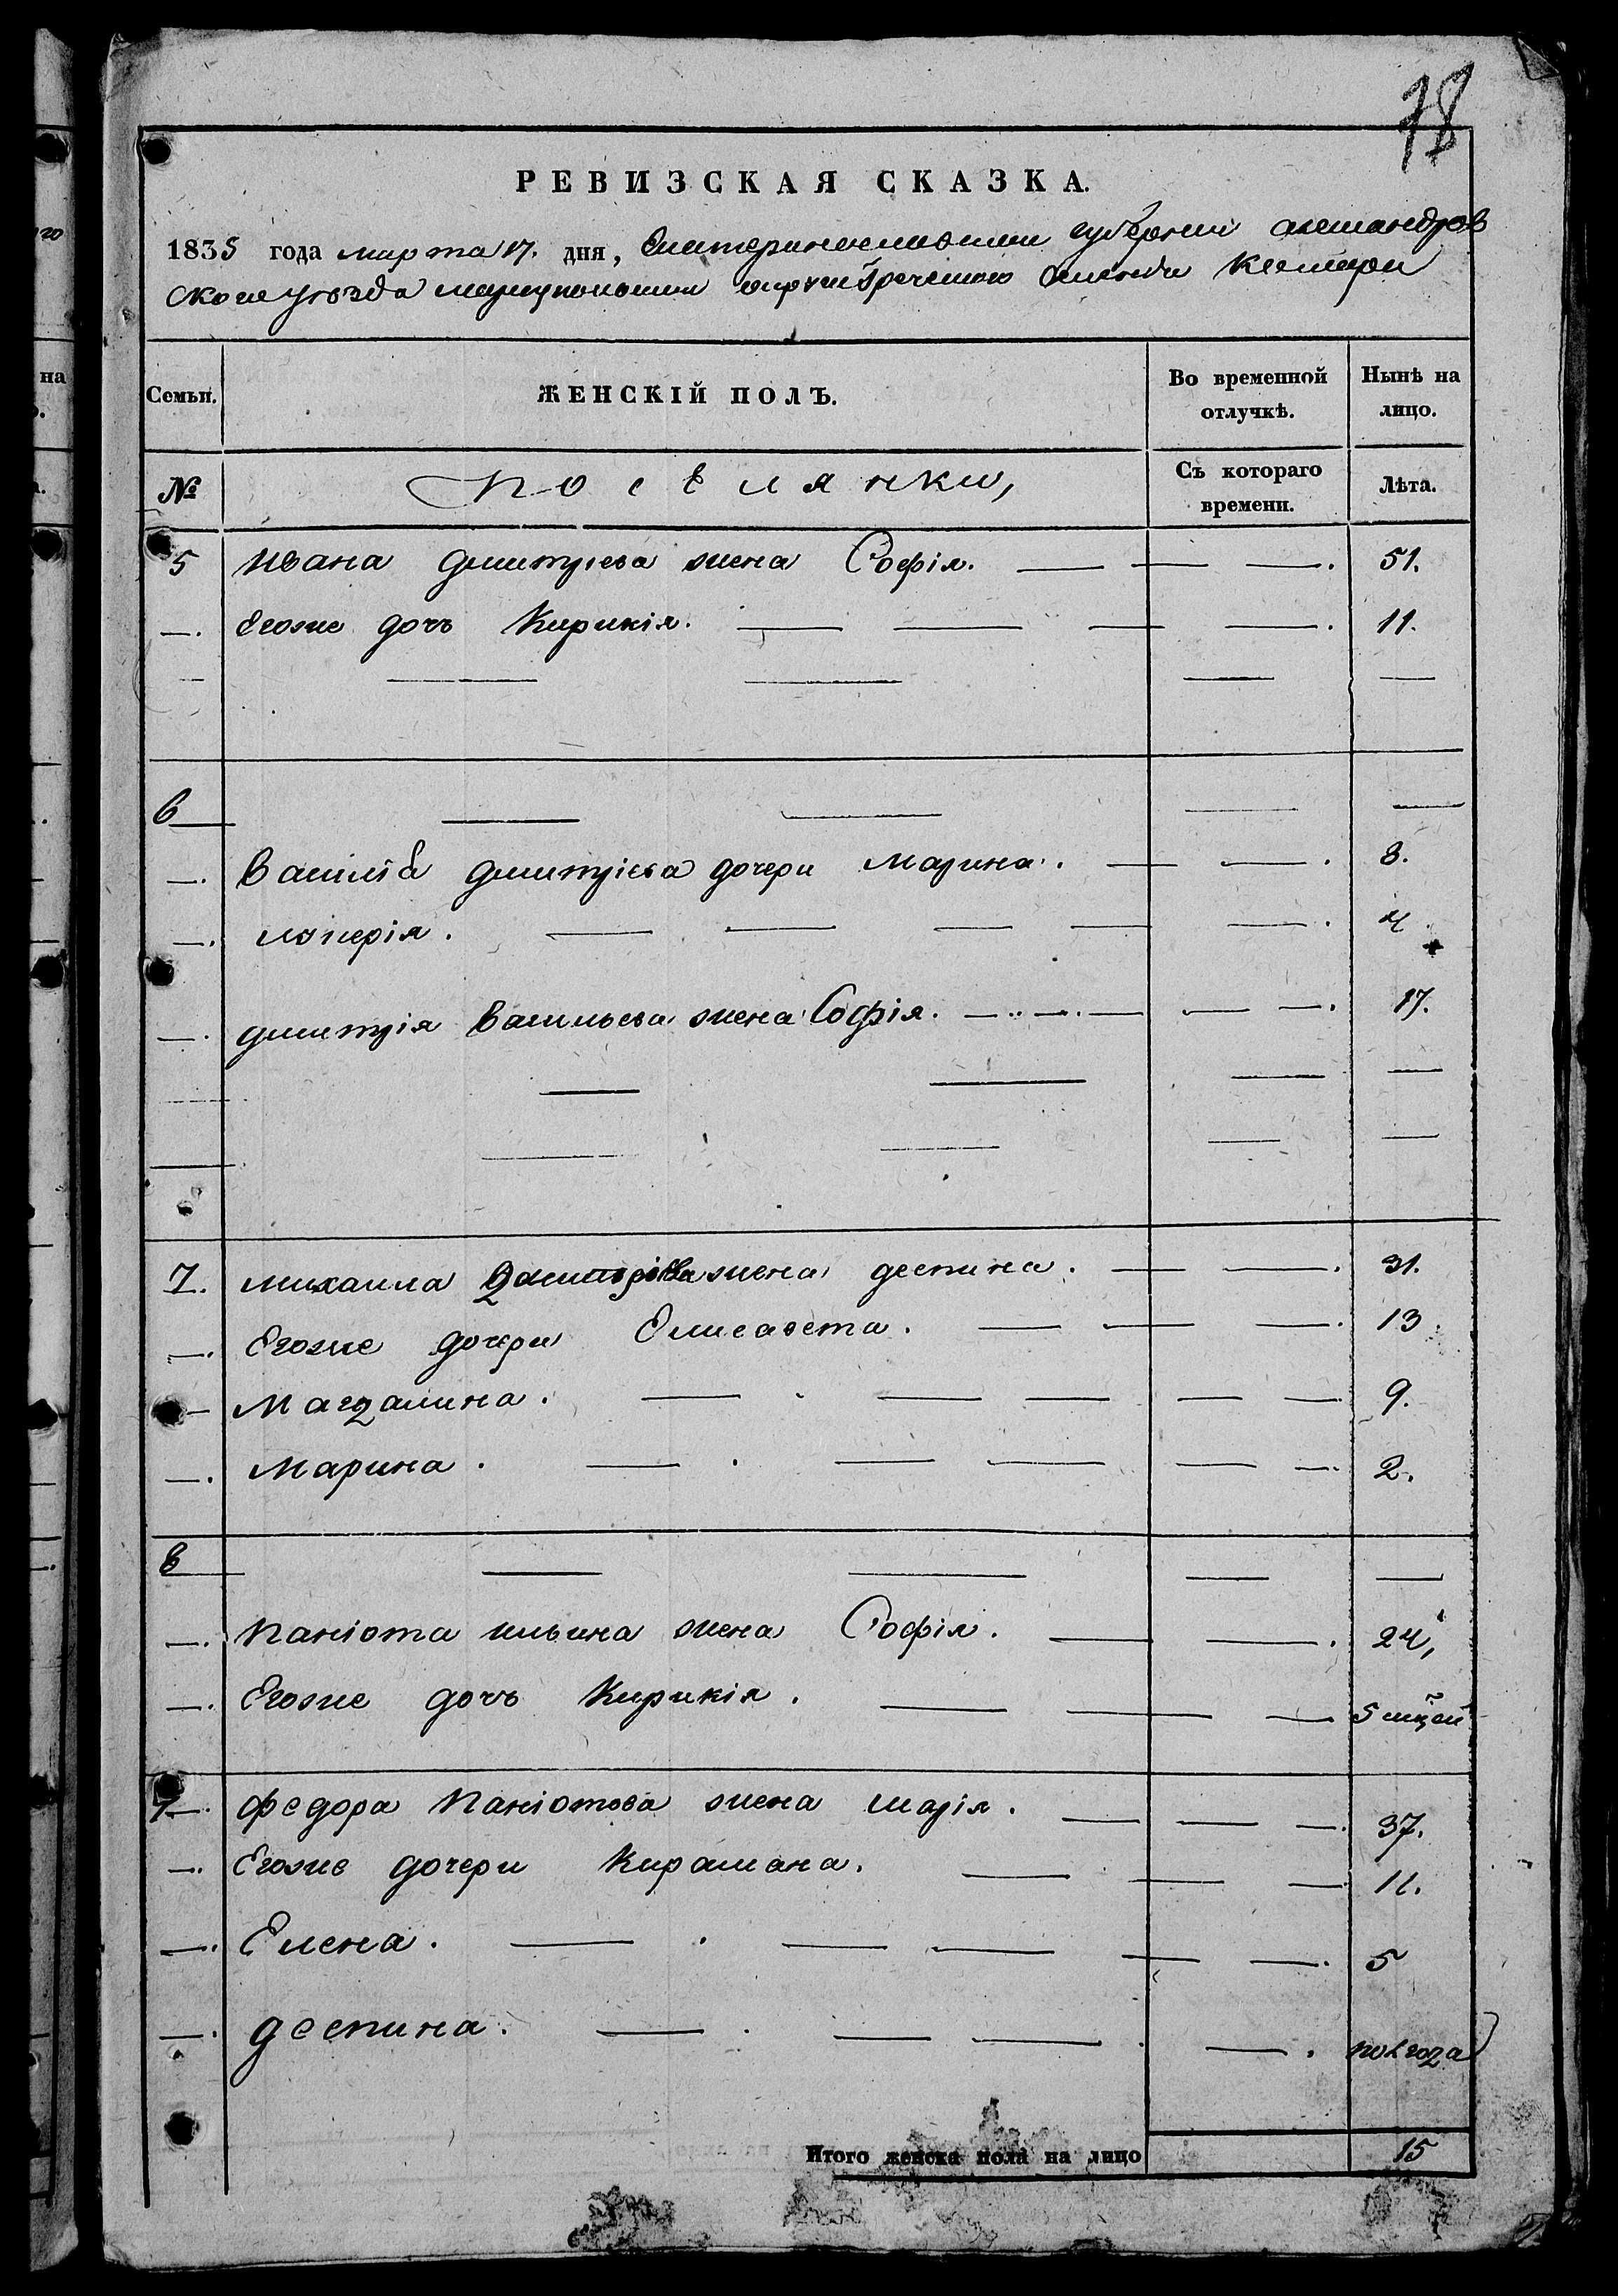 78
РЕВИЗСКАЯ СКАЗКА.
1835 года марта 17. дня, Екатеринославской губернии александров
ской уезда мариупольскаи округи греческаго селения
Семьи. ЖЕНСКІЙ ПОЛЪ. Во временной отлучкѣ. Нынѣ на лицо.
№ поселянки, Съ котораго времени. Лѣта.
5 Ивана дмитриева жена Софія. — — — . 51.
—. Егоже дочь Кирикія. — — — — . 11.
— — — — —
6 — — — —
—. Василія дмитріева дочери Марина. — — . 8.
—. — — — — — . 4
—. дмитрія Васильева жена Софія. — — — — — . 17.
— — — —
— — — — —
7. михаила Дмитріева жена деспина. — — . 31.
—. Егоже дочери Елисавета. — — — . 13
— Магдалина. — — — — — 9.
—. Марина. — — — — — . 2.
8 — — — —
—. Паніота ильина жена Софія. — — . 24,
—. Егоже дочь Кирикія. — — — 5 мцей
9 —. Федора Паніотова жена марія. — — — . 37.
—. Егоже дочери Кирамана. — — — 11.
—. Елена. — — — — — . 5
—. деспина. — — — — . полгода
Итого женска пола на лицо 15